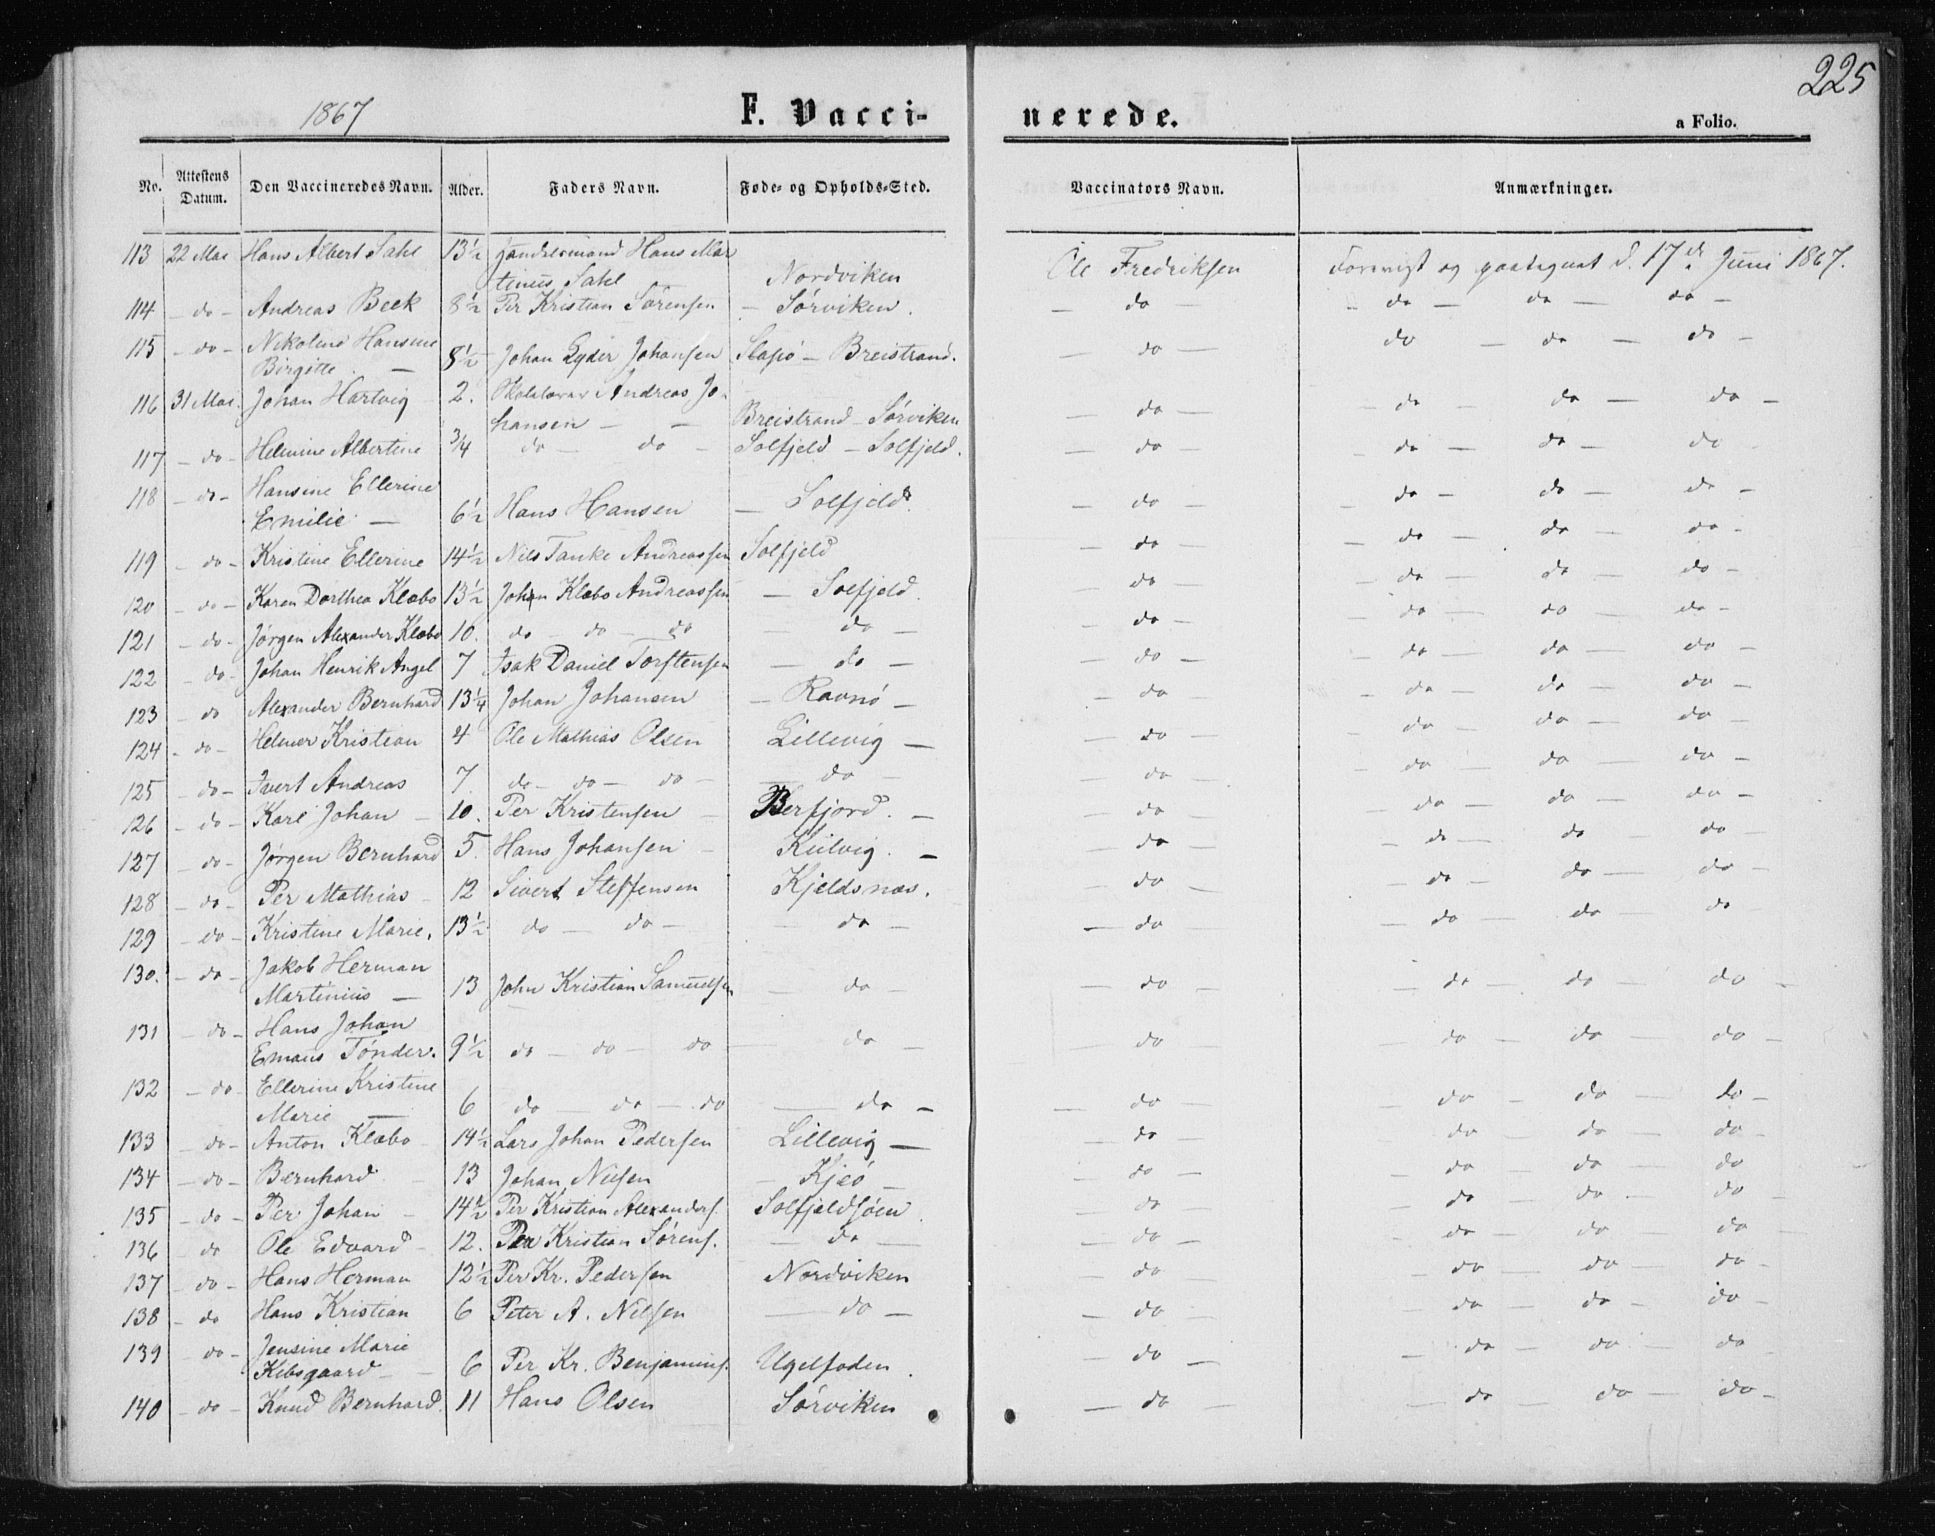 225
1867
F. Vacci-
nerede.
a Folio.
No. Attestens Datum. Den Vaccineredes Navn. Alder. Faders Navn. Føde- og Opholds-Sted. Vaccinators Navn. Anmærkninger.
113 22 Mai Hans Albert Sahl 13½ Handelsmand Hans Mar
tinus Sahl Nordviken Ole Fredriksen Forevist og paategnet d. 17de Juni 1867.
114 - do - Andreas Beck 8½ Per Kristian Sørensen - Sørviken. - do - - do - do - do -
115 - do - Nikoline Hansine
Birgitte. - 8½ Johan Lyder Johansen Slapø - Breistrand. - do - do - do - do -
116 31 Mai. Johan Hartvig 2. Skolelærer Andreas Jo-
hansen - - Breistrand - Sørviken - do - - do - do - do -
117 - do - Helmine Albertine ¾ do - do - Solfjeld - Solfjeld. - do - - do - do - do
118 - do - Hansine Ellerine
Emilie - 6½ Hans Hansen - Solfjeld. - do - - do - do - do -
119 - do - Kristine Ellerine 14½ Nils Tanke Andreassen Solfjeld - do - - do - do - do -
120 - do - Karen Dorthea Klæbo 13½ Johan Klæbo Andreassen - Solfjeld. - do - - do - do - do -
121 - do - Jørgen Alexander Klæbo 10. do - do - do do - - do - - do - do - do -
122 - do - Johan Henrik Angel 7 Isak Daniel Torstensen - do - - do - - do - do - do -
123 - do Alexander Bernhard 13¼ Johan Johansen - Ravnø - - do - - do - do - do -
124 - do - Helmer Kristian 4 Ole Mathias Olsen Lillevig - - do - - do - do - do -
125 - do - Ivert Andreas 7. do - do - do - - do - - do - - do - do - do -
126 - do - Karl Johan - 10. Per Kristensen - Berfjord. - - do - - do - do - do -
127 - do - Jørgen Bernhard 5. Hans Johansen - Kiilvig. - - do - - do - do - do -
128 - do - Per Mathias - 12 Sivert Steffensen Kjeldsnæs. - do - - do - do - do -
129 - do - Kristine Marie. 13½ do - do - - do - - do - - do - do - do
130. - do - Jakob Herman
Martinius - 13 John Kristian Samuelsen - do - - do - - do - do - do -
131 - do - Hans Johan
Emaus Tønder. 9½ do - do - do - do - - do - - do - do - do -
132 - do - Ellerine Kristine
Marie - 6 do - do - do - do - - do - - do - do - do -
133 - do - Anton Klæbo - 14½ Lars Johan Pedersen Lillevig - - do - do - do - do -
134 - do - Bernhard. - 13 Johan Nilsen - Kjeø - - do - - do - do - do
135 - do - Per Johan - 14½ Per Kristian Alexanders. Solfjeldsøen. - do - - do - do - do -
136 - do Ole Edvard - 12. Per Kristian Sørens. - do - - do - - do - do - do -
137 - do - Hans Herman 12½ Per Kr. Pedersen Nordviken - do - - do - do - do -
138 - do Hans Kristian 6 Peter A. Nilsen - do - - do - - do - do - do -
139 - do - Jensine Marie
Kibsgaard - - 6 Per Kr. Benjamins. Ugelfoden. - do - - do - do - do -
140 - do - Knud Bernhard. 11 Hans Olsen Sørviken - do - - do - do - do -